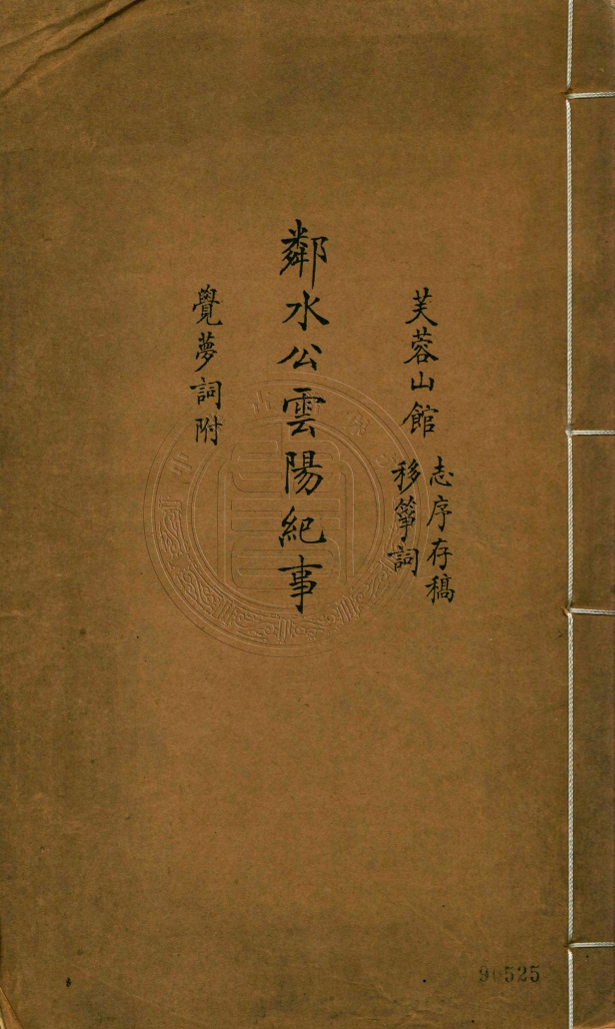 芙蓉山館
志序存稿
移箏詞
鄰水公雲陽紀事
覺夢詞附
90525